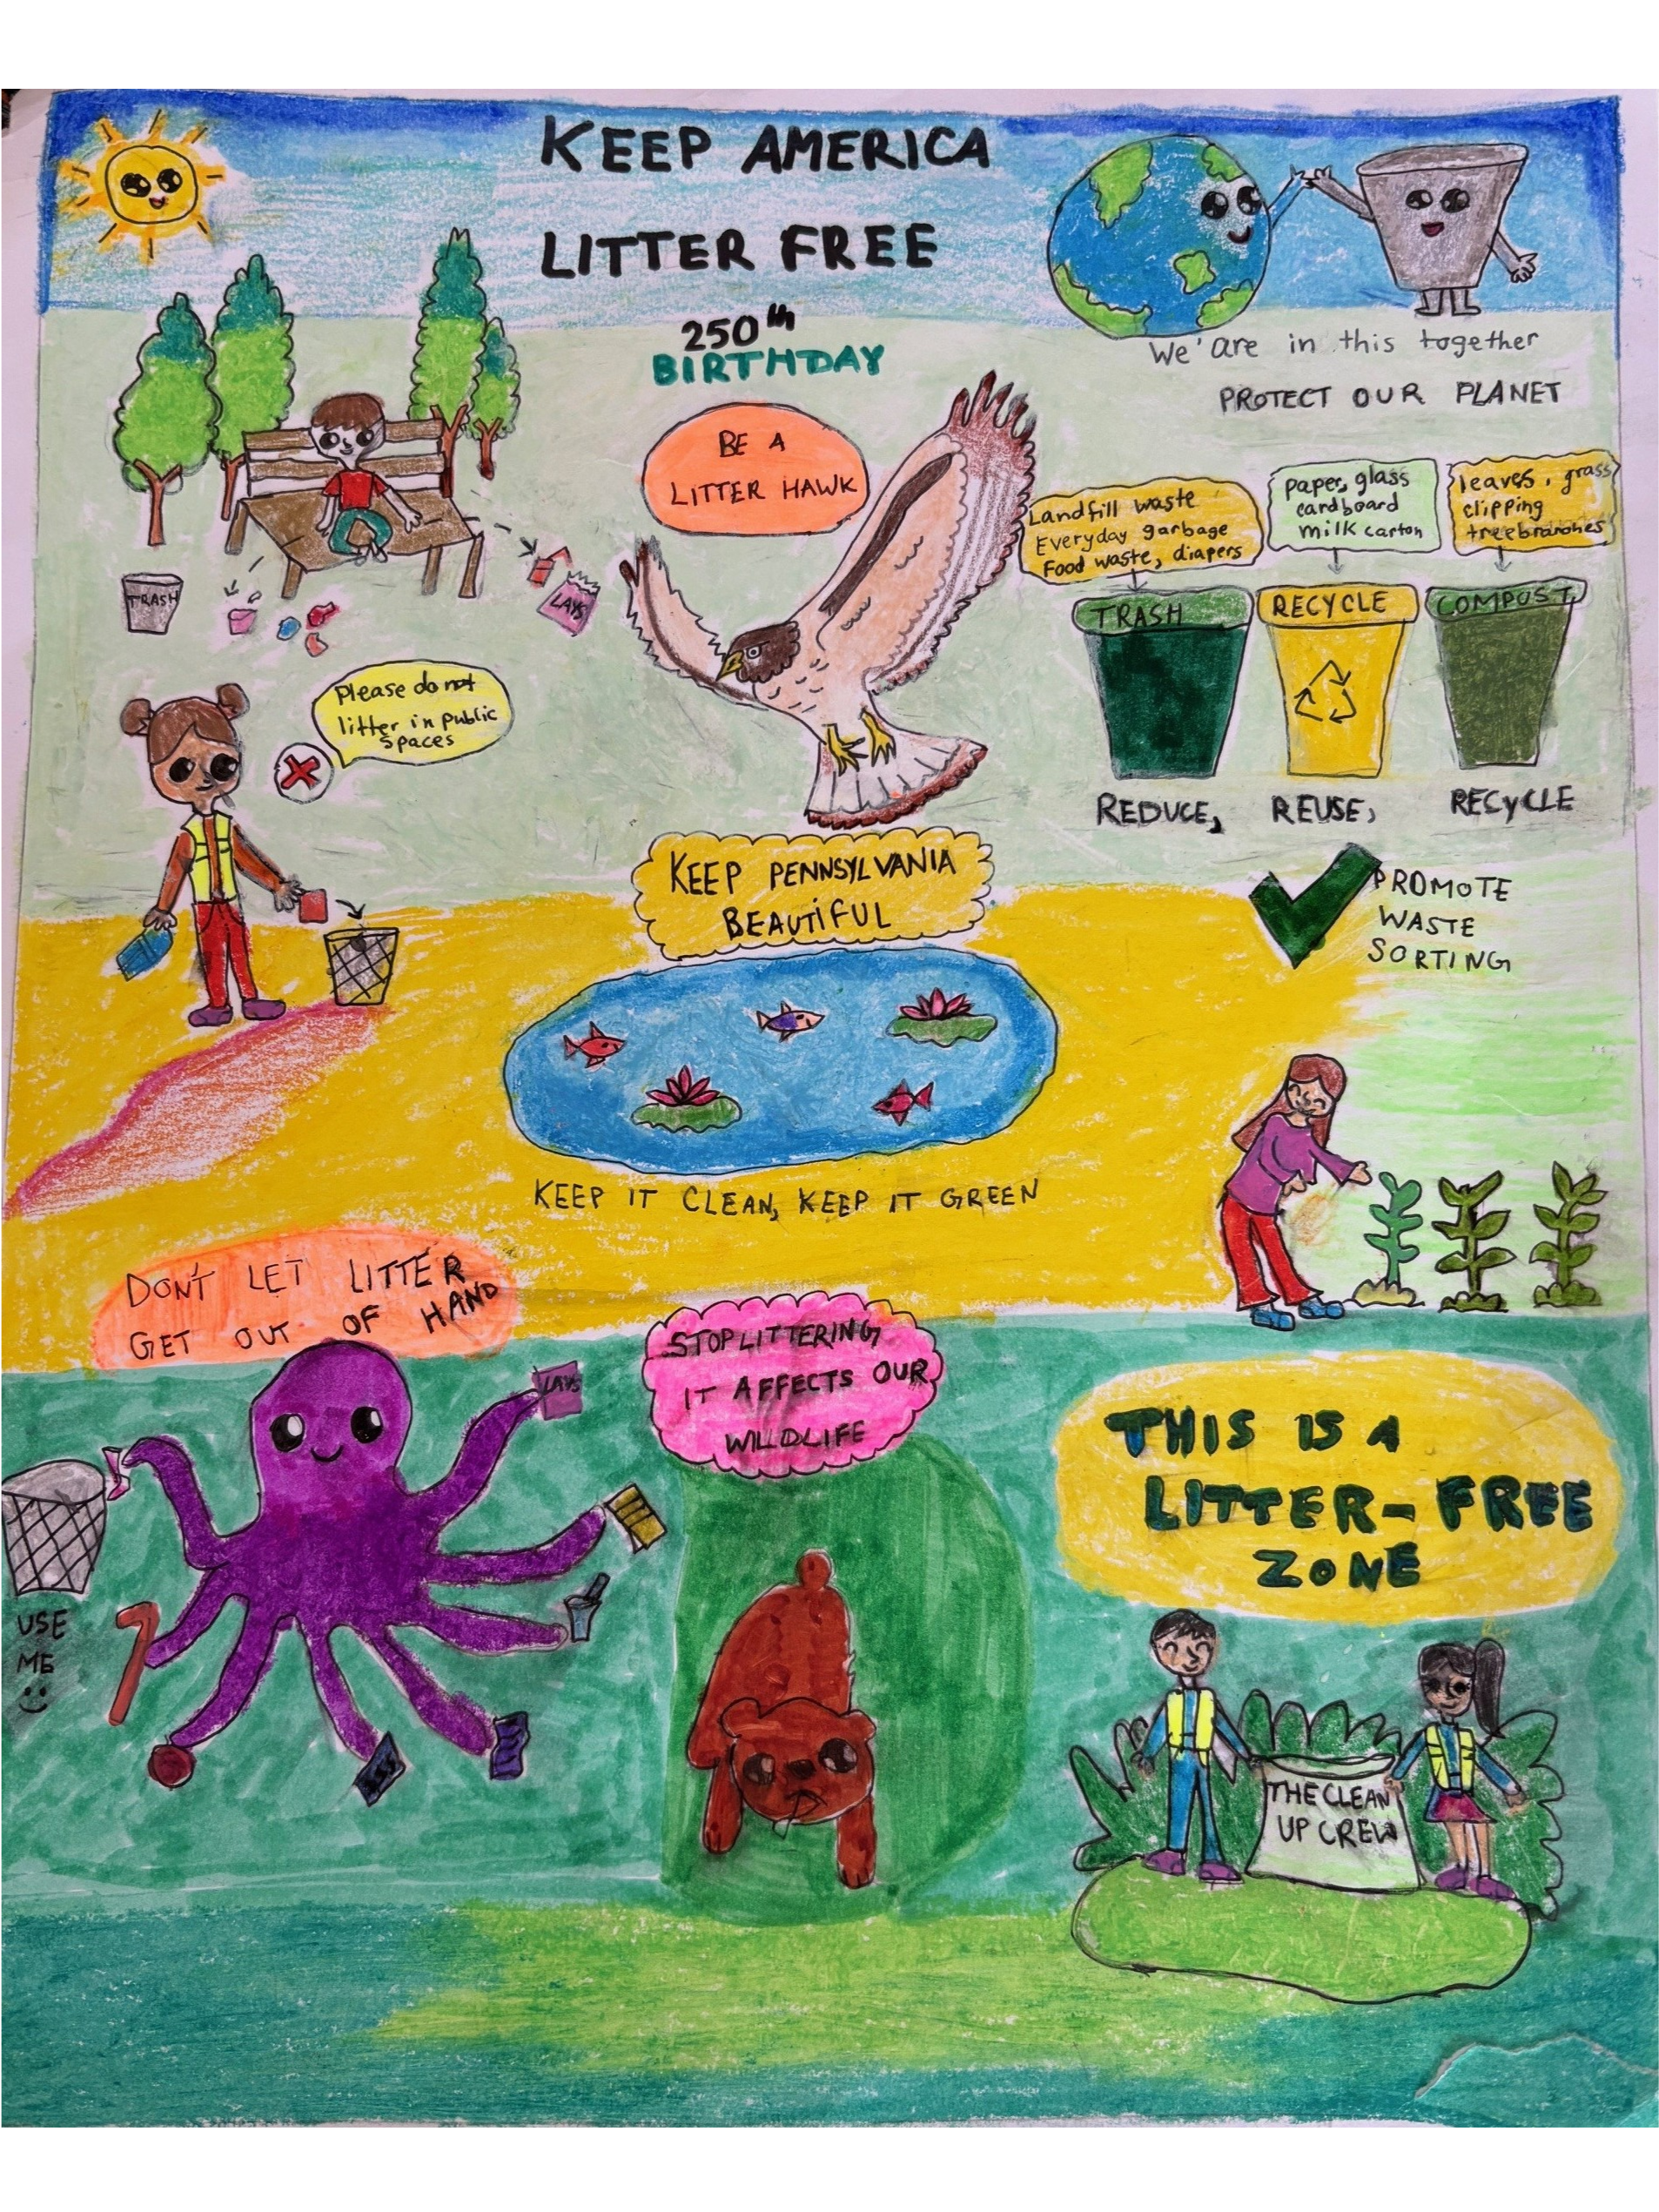 KEEP AMERICA
LITTER FREE
250th
BIRTHDAY
We'are in this together
PROTECT OUR PLANET
BE A
LITTER HAWK
Landfill waste
Everyday garbage
Food waste, diapers
paper, glass
cardboard
milk carton
leaves, grass
clipping
treebranches
TRASH
LAYS
TRASH
RECYCLE
COMPOST
Please do not
litter in public
spaces
REDUCE, REUSE, RECYCLE
KEEP PENNSYLVANIA
BEAUTIFUL
PROMOTE
WASTE
SORTING
KEEP IT CLEAN, KEEP IT GREEN
DON'T LET LITTER
GET OUT OF HAND
LAYS
STOP LITTERING
IT AFFECTS OUR
WILDLIFE
THIS IS A
LITTER-FREE
ZONE
USE
ME
THE CLEAN
UP CREW